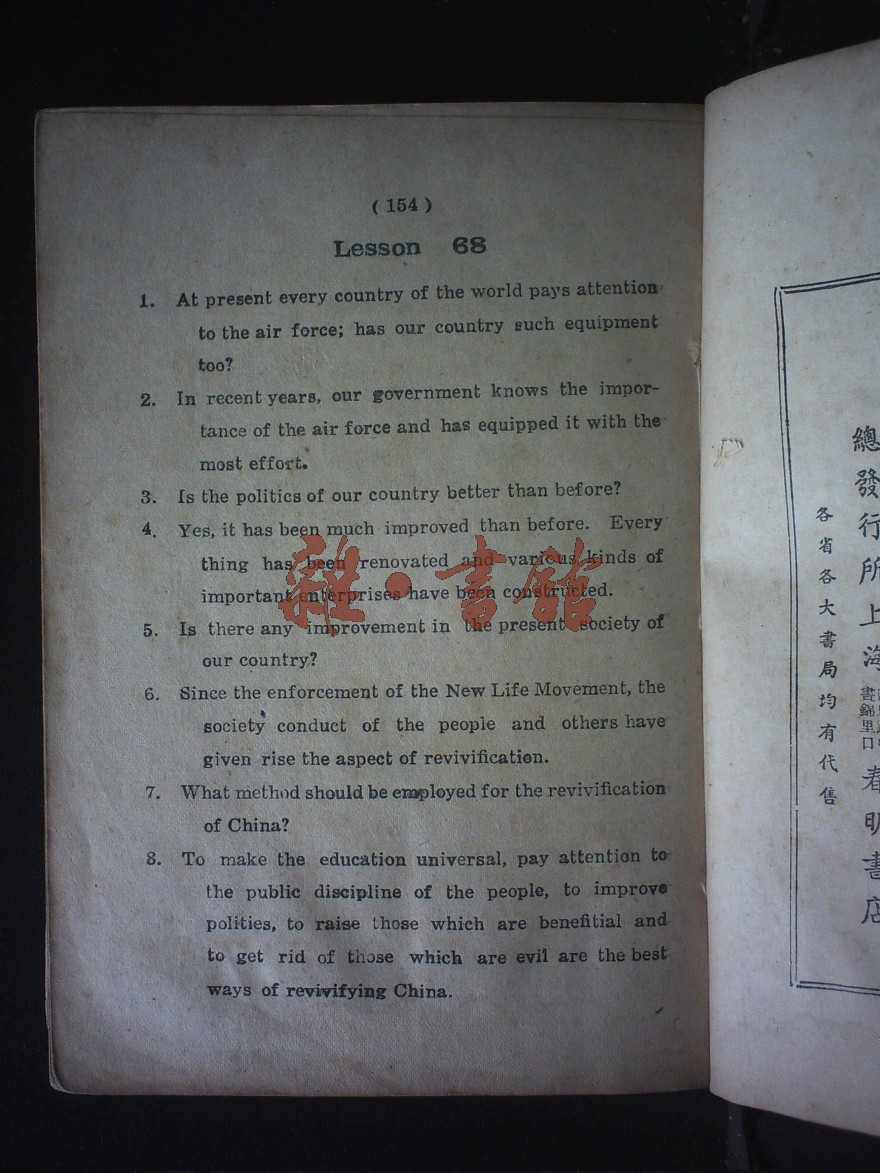 ( 154 )
Lesson 68
1. At present every country of the world pays attention
to the air force; has our country such equipment
too?
2. In recent years, our government knows the impor-
tance of the air force and has equipped it with the
most effort.
3. Is the politics of our country better than before?
4. Yes, it has been much improved than before. Every
thing has been renovated and various kinds of
important enterprises have been constructed.
5. Is there any improvement in the present society of
our country?
6. Since the enforcement of the New Life Movement, the
society conduct of the people and others have
given rise the aspect of revivification.
7. What method should be employed for the revivification
of China?
8. To make the education universal, pay attention to
the public discipline of the people, to improve
polities, to raise those which are benefitial and
to get rid of those which are evil are the best
ways of revivifying China.
雜·書館
總發行所上海
畫錦里口
春明書店
各省各大書局均有代售